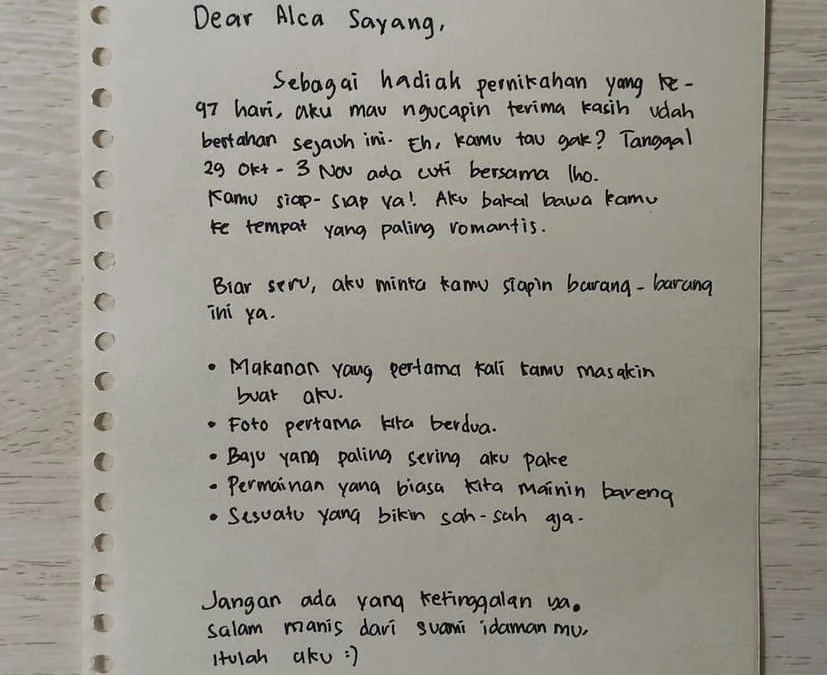 Dear Alca Sayang,
Sebagai hadiah pernikahan yang ke-
97 hari, aku mau ngucapin terima kasih udah
bertahan sejauh ini. Eh, kamu tau gak? Tanggal
29 Okt - 3 Nov ada cuti bersama lho.
Kamu siap-siap ya! Aku bakal bawa kamu
ke tempat yang paling romantis.
Biar seru, aku minta kamu siapin barang-barang
ini ya.
• Makanan yang pertama kali kamu masakin
buat aku.
• Foto pertama kita berdua.
• Baju yang paling sering aku pake
• Permainan yang biasa kita mainin bareng
• Sesuatu yang bikin sah-sah aja.
Jangan ada yang ketinggalan ya.
Salam manis dari suami idaman mu,
itulah aku :)